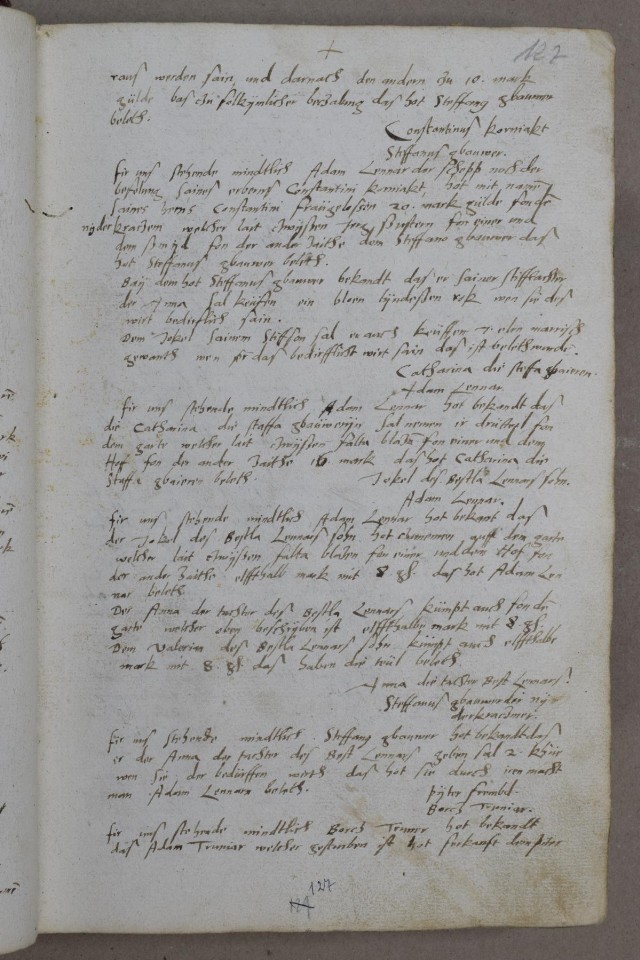 127
raus werden sain, und darnach den andern zu 10. mark
gülde bas zu folkymlicher bezalung das hot Steffany gbauwer
beleth.
Constantinus Korniakt
Steffanus gbauwer.
Fir uns stehende mindtlich Adam Lennar der schepp noch der
befelung saines erberns Constantini Korniakt, hot mit name
saines herns Constantini 20. mark gülde
welcher leit zwyssen fon einer und
dem fon der ander zaithe dem Steffano gbauwer das
hot Steffanus gbauwer beleth.
Bay dem hot Steffanus gbauwer bekandt das er sainer stifftachter
der Anna sal keiffen ein bloen lyndessen rok wen sie des
wirt bedirfflich sain.
Dem Jokel sainem stiffson sal er auch keiffen 7. elen
gewanth wen er das bedirfflich wirt sain das ist beleth
Catharina die stefa gbaieren.
Adam Lennar.
Fir uns stehende mindtlich Adam Lennar hot bekandt das
die Catharina die staffa gbauweryn sal nemen er fon
dem garte welcher leit zwyssen falta blaza fon einer und dem
Hof fon der ander zaithe 16 mark das hot Catharina die
Staffa gbaieren beleth.
Jokel des Bestla Lennars sohn.
Adam Lennar.
Fir uns stehende mindtlich Adam Lennar hot bekant das
der Jokel des Bestla Lennars sohn hot auff dem garte
welcher leit zwyssen falta blazen fon einer und dem Hof fon
der ander zaithe elffthalb mark mit 8 gl. das hot Adam Len
nar beleth
Der Anna der tachter des Bestla Lennars kümpt auch fon de
garte welcher oben beschryben ist elffthalbe mark mit 8 gl.
Dem Valerian des Bestla Lennars sohn kümpt auch elffthalbe
mark mit 8. gl. das haben die teil beleth
Anna die tachter Best Lennars
Steffanus gbauwer der
Fir uns stehende mindtlich Steffany gbauwer hot bekandt das
er der Anna der tachter des Best Lennars geben sal 2. khüe
wen sie der bedürffen werth das hot sie durch iren macht
man Adam Lennarn beleth.
Pyter frembd.
Borch Truniar.
Fir uns stehende mindtlich Borch Truniar hot bekandt
das Adam Truniar welcher gestorben ist hot ferkaufft dem piter
127